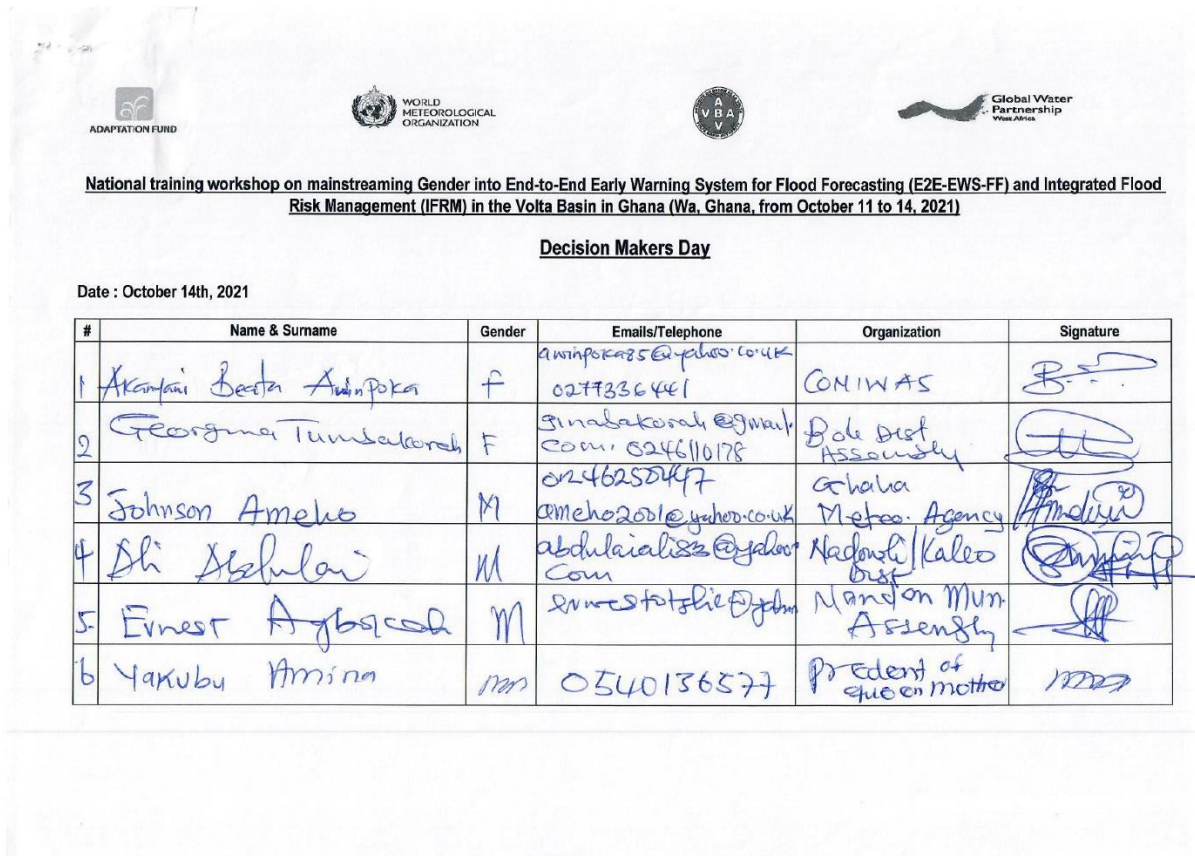 ADAPTATION FUND
WORLD
METEOROLOGICAL
ORGANIZATION
A
VBA
V
Global Water
Partnership
West Africa
National training workshop on mainstreaming Gender into End-to-End Early Warning System for Flood Forecasting (E2E-EWS-FF) and Integrated Flood
Risk Management (IFRM) in the Volta Basin in Ghana (Wa, Ghana, from October 11 to 14, 2021)
Decision Makers Day
Date : October 14th, 2021
# Name & Surname Gender Emails/Telephone Organization Signature
awinpoka85@yahoo.co.uk
1 Akanjani Beata Awinpoka F 0277336441 CONIWAS
2 Georgina Tumbakorah F ginabakorah@gmail. Bole Dist
com. 0246110178 Assembly
3 Johnson Ameho M 0246250447 Ghana
ameho2001@yahoo.co.uk Meteo. Agency
4 Ali Abdulai M abdulaiali83@yahoo Nadowli/Kaleo
Com Dist
5. Ernest M Nandom Mun.
Assembly
6 Yakubu Amina 0540136577 Predent of
queen mother